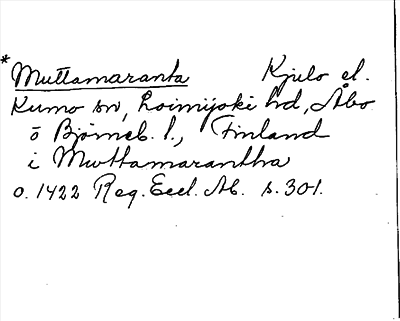 * Muttamaranta Kjulo el.
Kumo sn, Loimijoki hd, Åbo
o Björneb. l., Finland
i Muttamarantha
o. 1422 Reg. Eccl. Ab. s. 301.